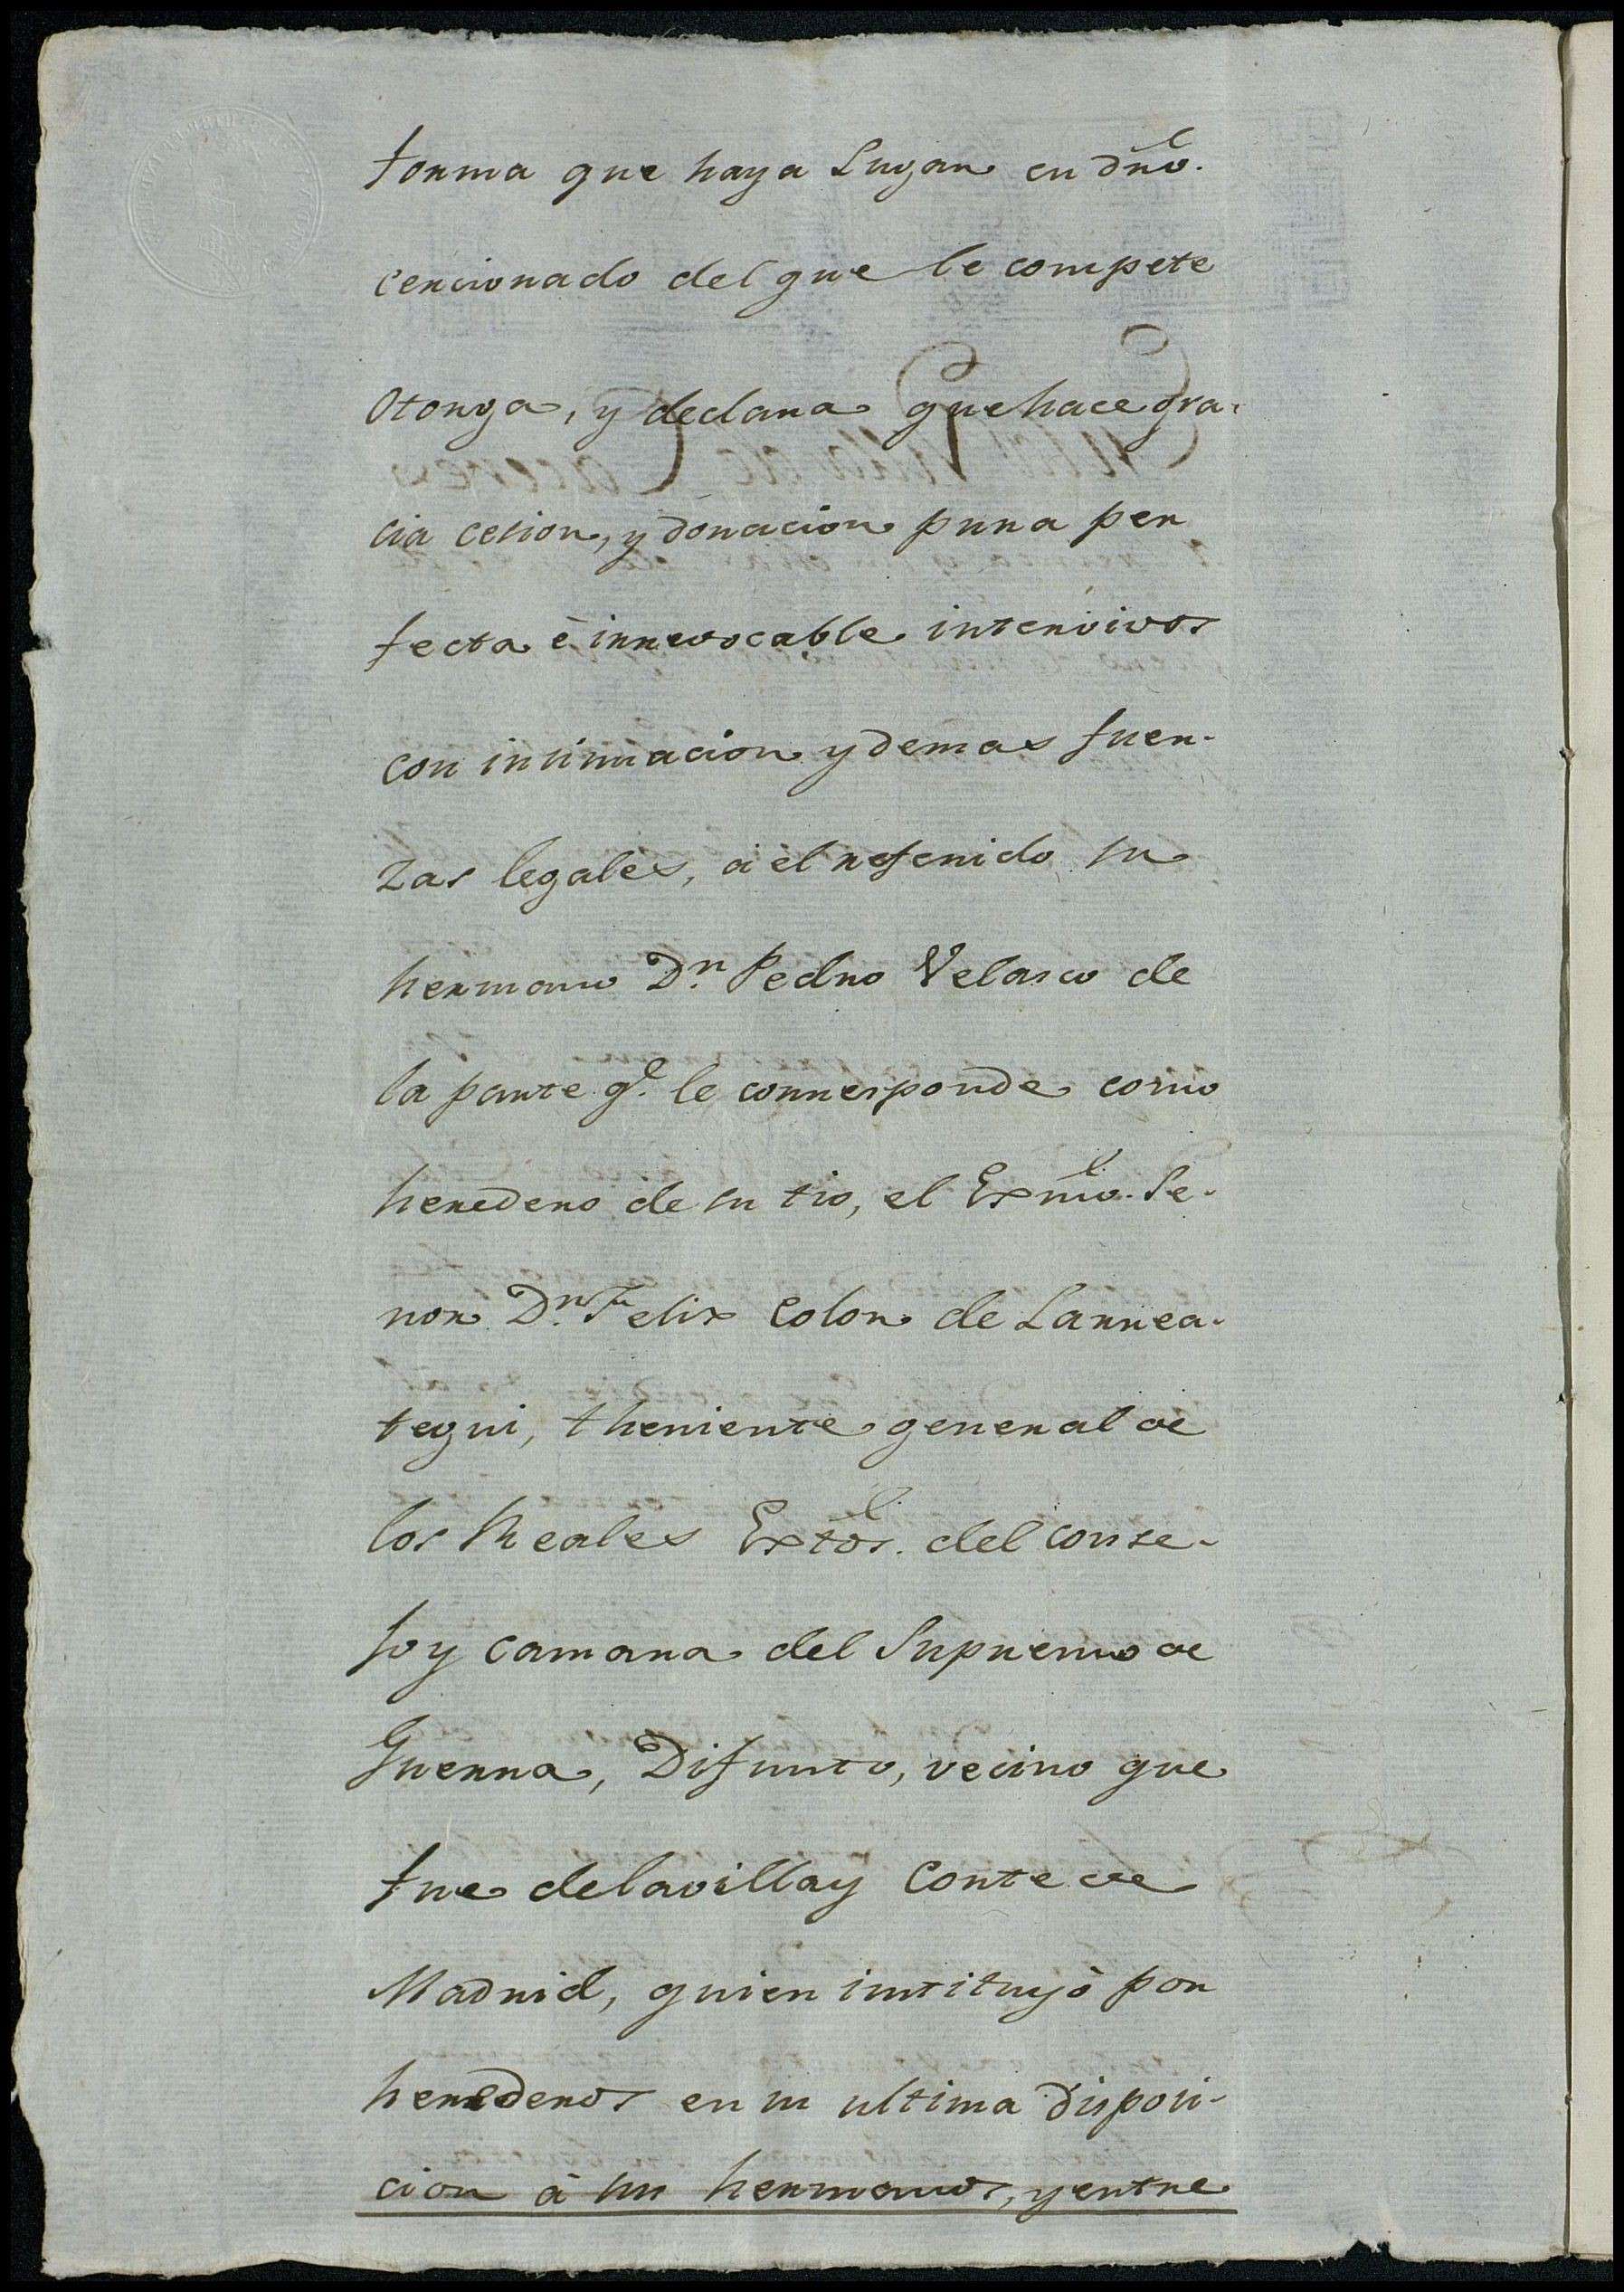 forma que haya Lugar en dro.
cercionado del que le compete
Otorga, y declara Que hace gra-
cia cesion, y donacion pura per
fecta è irrevocable intervivos
con insinuacion y demas fuer-
zas legales, à el referido su
hermano Dn. Pedro Velasco de
la parte qe. le corresponde como
heredero de su tio, el Exmo. Se-
ñor Dn. Felix Colon de Larrea-
tegui, theniente general de
los Reales Extos. del conse-
jo y camara del Supremo de
Guerra, Difunto, vecino que
fue de la villa y Corte de
Madrid, quien instituyò por
herederos en su ultima disposi-
cion à sus hermanos, y entre